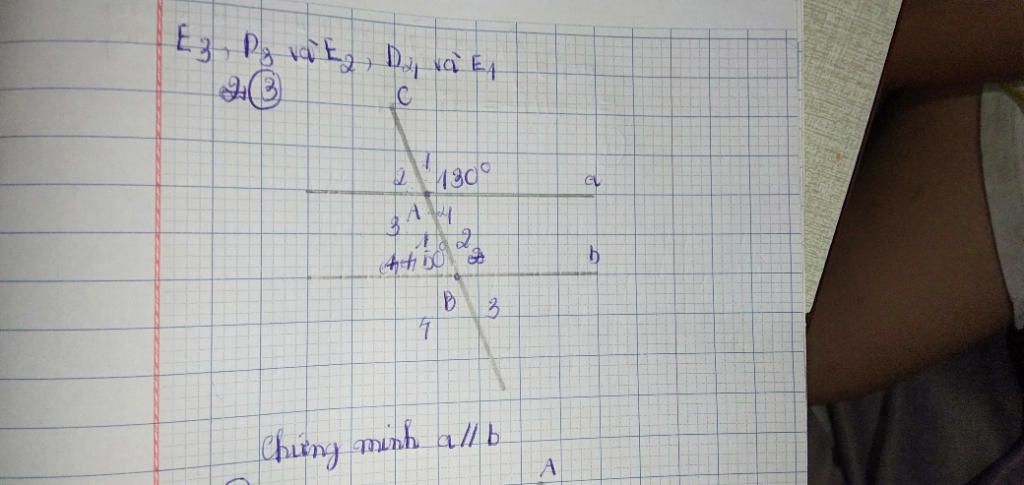 E3, D3 và E2, D4 và E1
3
C
1
2 130° a
A 4
3
1 2
50° b
B 3
4
Chứng minh a // b
A